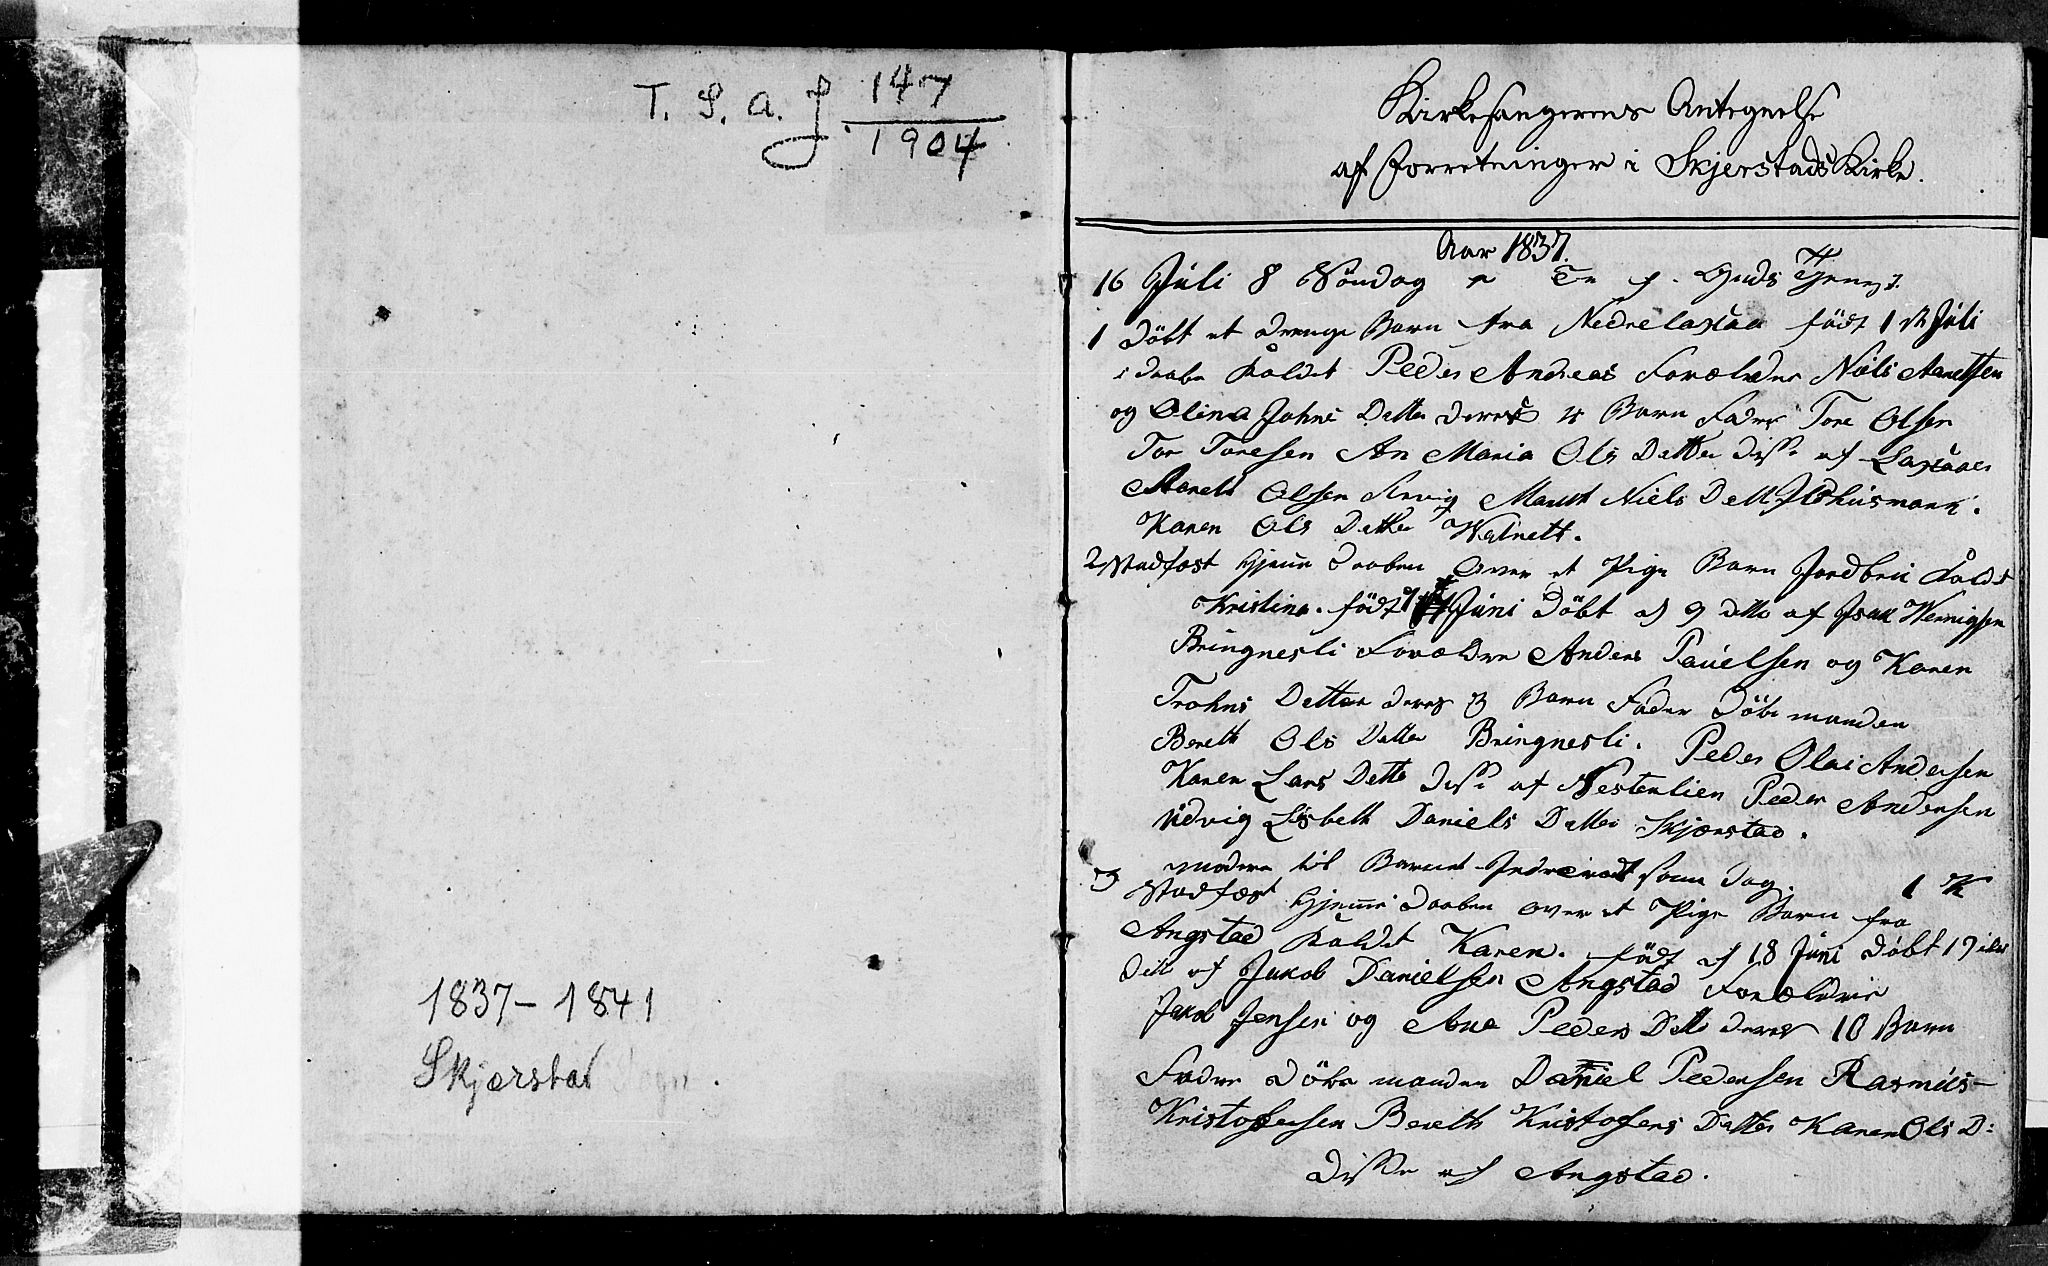 T. S. A. J. 147
1904
1837 - 1841
Skjærstad Sogn.
Kirkesangerens Antegnelse
af Forretninger i Skjerstads Kirke.
Aar 1837.
16 Juli 8 Söndag Tr f. Guds Tjenest
1 Döbt et drenge Barn fra Nedrelaxaa födt 1 Juli
i daaben kaldet Peder Andreas Forældre Niels Aarettsen
og Olina Johns Detter deres Barn Fadr Tore Olsen
Tor Toresen An Maria Ols Detter disse af Laxaaen
Olsen Marett Niels Dett
Karen Ols Detter Watnett.
2 Stadfæst Hjemme daaben over et Pige Barn Jordbru kaldt
Kristina. födt Juni Döbt d 9 dito af Isak Wernigsen
Bringnesli Forældre Anders Pauelsen og Karen
Trohns Detter deres 3 Barn Fadder döbe manden
Berett Ols Detter Bringnesli. Peder Olai Andersen
Karen Lars Dette disse af Nestenlien Peder Andersen
Udvig Lisbeth Daniels Detter Skjærstad.
moderen til Barnet Indleedt samme dag. 1 K
3 Stadfæst Hjemme daaben over et Pige Barn fra
Angstad kaldet Karen. födt d 18 Juni döbt 19
ditto af Jakob Danielsen Angstad Forældre
Jakob Jensen og Ane Peders Dett deres 10 Barn
Faddre döbe manden Daniel Pedersen Rasmus
Kristofersen Berett Kristofers Detter Karen Ols D:
disse af Angstad.